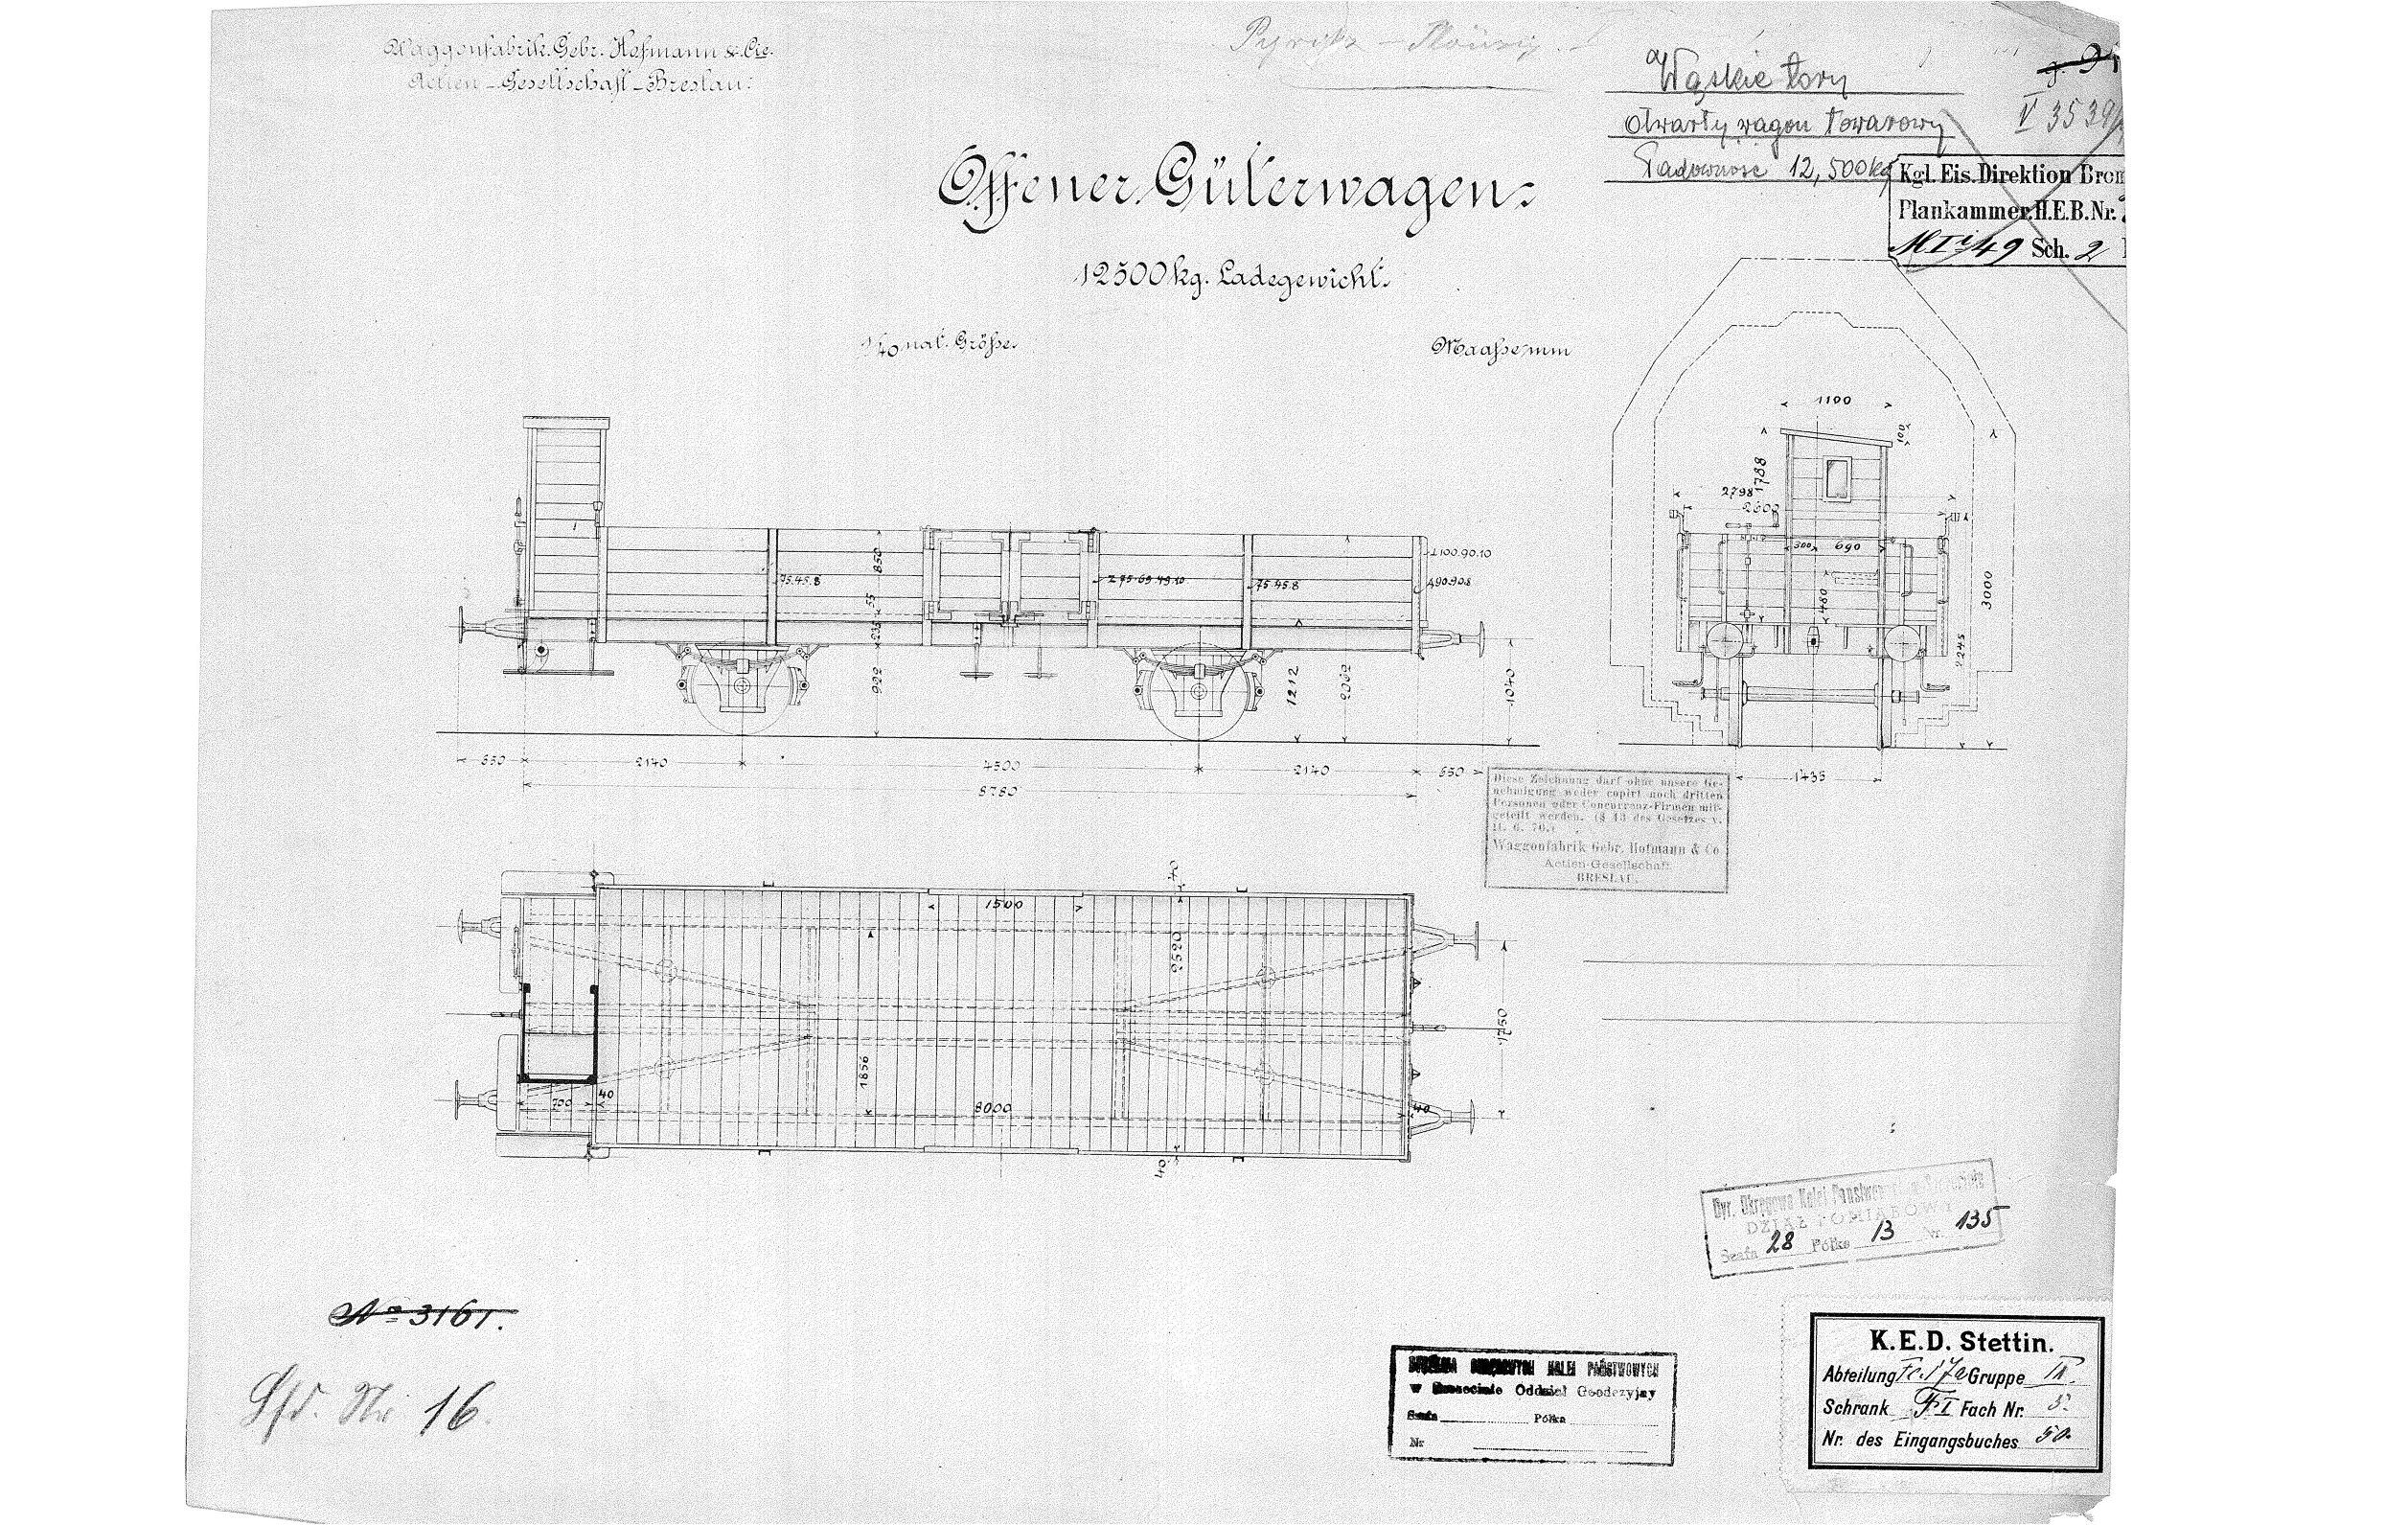 Waggonfabrik Gebr. Hofmann & Cie.
Actien-Gesellschaft-Breslau.
Wąskie tory
Otwarty wagon towarowy
Ładowność 12,500 kg
V 3539
Kgl. Eis. Direktion Brom
Plankammer. H.E.B. Nr.
Sch. 2
Offener Güterwagen.
12500 kg. Ladegewicht.
1/40 nat. Größe.
Maasse mm
1100
100
1788
2798
2600
300
690
480
3000
1245
1435
75.45.8
850
55
235
922
Z 75.69.49.10
75.45.8
⊥100.90.10
90.90.8
1212
2062
1040
650
2140
4500
2140
650
8780
Diese Zeichnung darf ohne unsere Ge-
nehmigung weder copirt noch dritten
Personen oder Concurrenz-Firmen mit-
geteilt werden. (§ 43 des Gesetzes v.
11. 6. 70.)
Waggonfabrik Gebr. Hofmann & Co
Actien-Gesellschaft
BRESLAU.
40
1500
2520
1750
1856
700
40
8000
40
40
Dyr. Okręgowa Kolei Państw
DZIAŁ POMIAROWY
Szafa 28 Półka 13 Nr. 135
No 3161.
Lfd. Nr. 16.
KOLEI PAŃSTWOWYCH
w Szczecinie Oddział Geodezyjny
Szafa Półka
Nr
K.E.D. Stettin.
Abteilung Gruppe
Schrank F I Fach Nr. 5.
Nr. des Eingangsbuches 50.